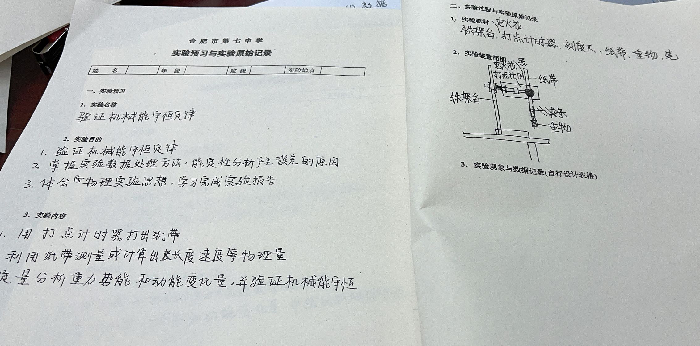 合肥市第七中学
实验预习与实验原始记录
姓 名 年 级 班 级 实验地点
一、实验预习
1、实验名称
验证机械能守恒定律
2、实验目的
1. 验证机械能守恒定律
2. 掌握实验数据处理方法,能定性分析产生误差的原因
3. 体会物理实验思想,学习完成实验报告
3、实验内容
1. 用打点计时器打出纸带
利用纸带测量或计算出长度速度等物理量
定量分析重力势能和动能变化量,并验证机械能守恒
二、实验过程与实验原始记录
1、实验器材
铁架台、打点计时器、刻度尺、纸带、重物、
2、实验装置简图
打点计时器
纸带
铁架台
夹子
重物
3、实验现象与数据记录(自行设计表格)